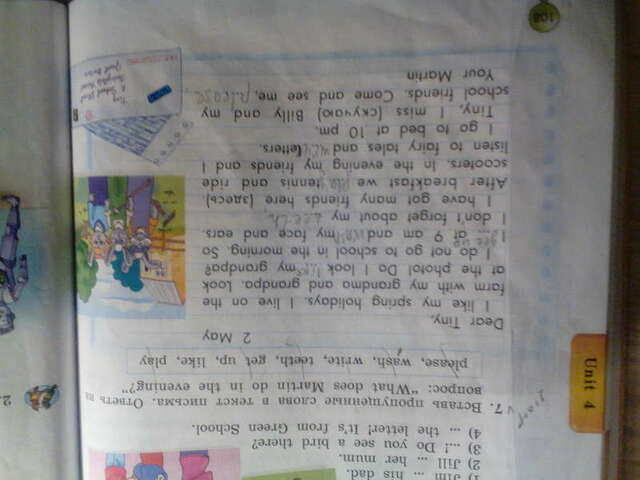 1) Jim ... his dad.
2) Jill ... her mum.
3) ...! Do you see a bird there?
4) ... the letter! It's from Green School.
7. Вставь пропущенные слова в текст письма. Ответь на
вопрос: "What does Martin do in the evening?"
please, wash, write, teeth, get up, like, play
2 May
Dear Tiny,
I like my spring holidays. I live on the
farm with my grandma and grandpa. Look
at the photo! Do I look like my grandpa?
I do not go to school in the morning. So
I ... at 9 am and wash my face and ears.
I don't forget about my teeth.
I have got many friends here (здесь)
After breakfast we tennis and ride
scooters. In the evening my friends and I
listen to fairy tales and letters.
I go to bed at 10 pm.
Tiny, I miss (скучаю) Billy and my
school friends. Come and see me, please.
Your Martin
Unit 4
108
2.